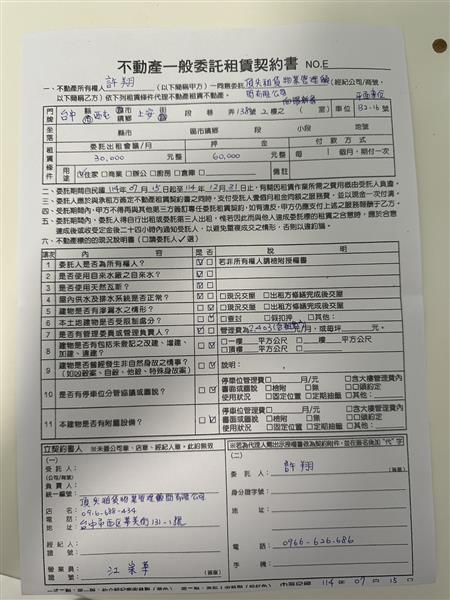 不動產一般委託租賃契約書 NO.E
一、不動產所有權人 許翔 (以下簡稱甲方)一同意委託 頂尖租賃物業管理顧問有限公司 (經紀公司/商號,
以下簡稱乙方)依下列租賃條件代理不動產租賃不動產。
門牌 台中 縣市 西屯 區市鄉鎮 上安 街 段 巷 弄 138號 2樓之 (室) 車位 平面車位 B2-16號
坐落 縣市 區市鄉鎮 段 小段 地號
租賃條件 委託出租會議/月 押金 付款方式
30,000 元整 60,000 元整 每 1 個月,期付一次
用途 ☑住家 □商業 □辦公 □廚房 □倉庫 □ 備註
二、委託期間自民國 114年 07月 15日起至 114年 12月 31日止,有關因租賃作業所需之費用概由受任人負擔。
三、委託人應於與承租方簽定不動產租賃契約書之同時,支付受託人壹個月租金同額之服務費,並以現金一次付清。
四、委託期間內,甲方不得再與其他第三方簽訂專任委託租賃契約,如有違反,甲方仍應支付上述之服務報酬于乙方。
五、委託期間內,委託人得自行出租或委託第三人出租,惟若因此而與他人達成委託標的租賃之合意時,應於合意
達成後或收受定金後二十四小時內通知受託人,以避免重複成交之情形,否則以違約論。
六、不動產標的的現況說明書(□請委託人✓選)
項次 內容 是 否 說明
1 委託人是否為所有權人? ☑ □ 若非所有權人請檢附授權書
2 是否使用自來水廠之自來水? ☑ □
3 是否使用天然瓦斯? ☑ □
4 屋內供水及排水系統是否正常? ☑ □ □現況交屋 □出租方修繕完成後交屋
5 建物是否有滲漏水之情形? □ ☑ □現況交屋 □出租方修繕完成後交屋
6 本土地建物是否受限制處分? □ ☑ □查封 □假扣押 □其他:
7 是否有管理委員會或管理負責人? ☑ □ 管理費為 2,403 元/月,或每坪 元。
8 建物是否有包括未登記之改建、增建、加建、違建? □ ☑ □一樓 平方公尺 □ 樓 平方公尺
□頂樓 平方公尺
9 建物是否曾經發生非自然身故之情事?(如凶殺案、自殺、他殺、特殊身故案) □ ☑ 說明:
10 是否有停車位分管協議或圖說? □ ☑ 停車位管理費□ 元/月 □含大樓管理費內
書面或圖說 □檢附 □無 □口頭約定
使用狀況 □固定位置 □定期抽籤 □其他:
11 本建物是否有附屬設備? □ ☑ 停車位管理費□ 元/月 □含大樓管理費內
書面或圖說 □檢附 □無 □口頭約定
使用狀況 □固定位置 □定期抽籤 □其他:
立契約書人 ※未蓋公司章、店章、經紀人章,此約無效
※若為代理人需出示授權書做為契約附件,並在簽名後加“代”字
(一)
受託人:
(公司/商號)
負責人:
統一編號:
店名: 頂尖租賃物業管理顧問有限公司
電話:
地址: 台中市西區華美街131-1號
經紀人:
證號:
營業員: (簽章)
證號:
(二)
委託人: 許翔 (簽章)
身分證字號:
地址:
電話: 0966-626-686
手機:
中華民國 114年 07月 15日